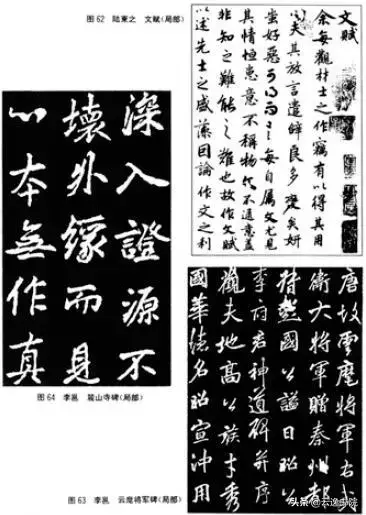 图62 陆柬之 文赋(局部)
文賦
余每觀材士之作竊有以得其用
心夫其放言遣辭良多變矣妍
蚩好惡可得而言每自属文尤見
其情恒患意不稱物文不逮意蓋
非知之難能之難也故作文賦
以述先士之盛藻因論作文之利
深入證源不
壞外緣而見
心本無作真
图64 李邕 麓山寺碑(局部)
唐故雲麾將軍右武
衛大將軍贈秦州都
督彭國公謚曰昭公
李府君神道碑并序
觀夫地高公族才秀
國華德名昭宣沖用
图63 李邕 云麾将军碑(局部)
头条@云逸书院